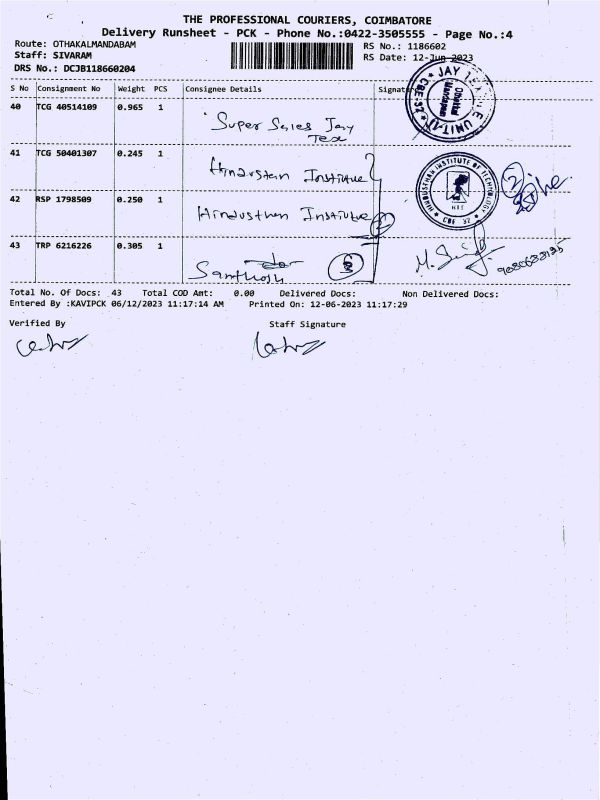 THE PROFESSIONAL COURIERS, COIMBATORE
Delivery Runsheet - PCK - Phone No.:0422-3505555 - Page No.:4
Route: OTHAKALMANDABAM
RS No.: 1186602
Staff: SIVARAM
RS Date: 12-Jun-2023
DRS No.: DCJB118660204
S No Consignment No Weight PCS Consignee Details Signat
40 TCG 40514109 0.965 1
Super Sales Jay
Tex
JAY UNIT-
Othakal
Mandapam
CBE-32
41 TCG 50401307 0.245 1 Hindustan Institute
HINDUSTHAN INSTITUTE OF TECHNOLOGY
HIT
CBE 32
42 RSP 1798509 0.250 1 Hindusthan Institute
2
43 TRP 6216226 0.305 1
Santhosh
Total No. Of Docs: 43 Total COD Amt: 0.00 Delivered Docs: Non Delivered Docs:
Entered By :KAVIPCK 06/12/2023 11:17:14 AM Printed On: 12-06-2023 11:17:29
Verified By Staff Signature